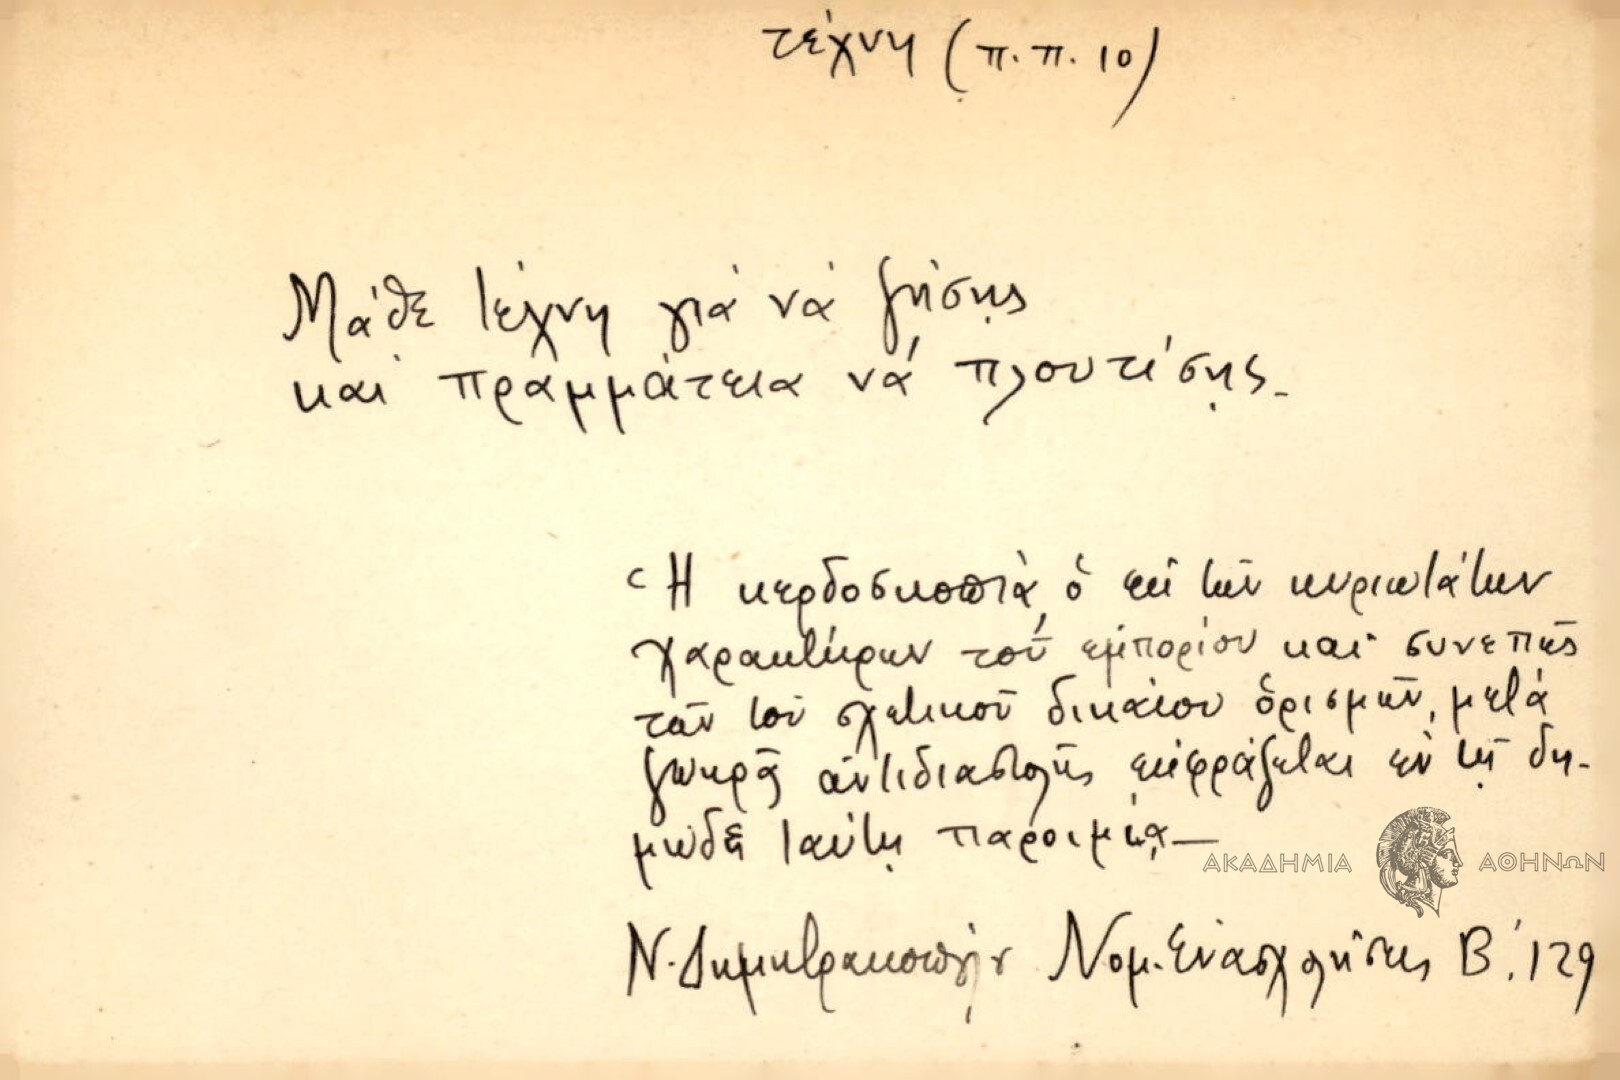 τέχνη (π.π. 10)
Μάθε τέχνη γιά νά ζήσῃς
καί πραμμάτεια νά πλουτίσῃς.
Ἡ κερδοσκοπία, ὁ ἐκ τῶν κυριωτάτων
χαρακτήρων τοῦ ἐμπορίου καί συνεπῶς
τῶν τοῦ σχετικοῦ δικαίου ὁρισμῶν, μετά
ζωηρᾶς ἀντιδιαστολῆς ἐκφράζεται ἐν τῇ δη-
μώδει ταύτῃ παροιμίᾳ—
ΑΚΑΔΗΜΙΑ ΑΘΗΝΩΝ
Ν. Δημητρακοπούλου Νομ. Ἐνασχολήσεις Β΄. 129